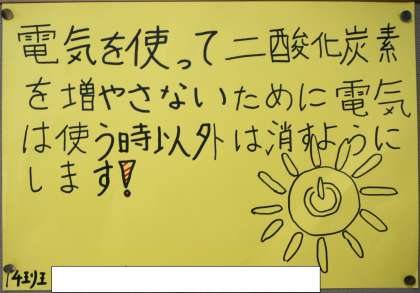 電気を使って二酸化炭素
を増やさないために電気
は使う時以外は消すように
します!
4班